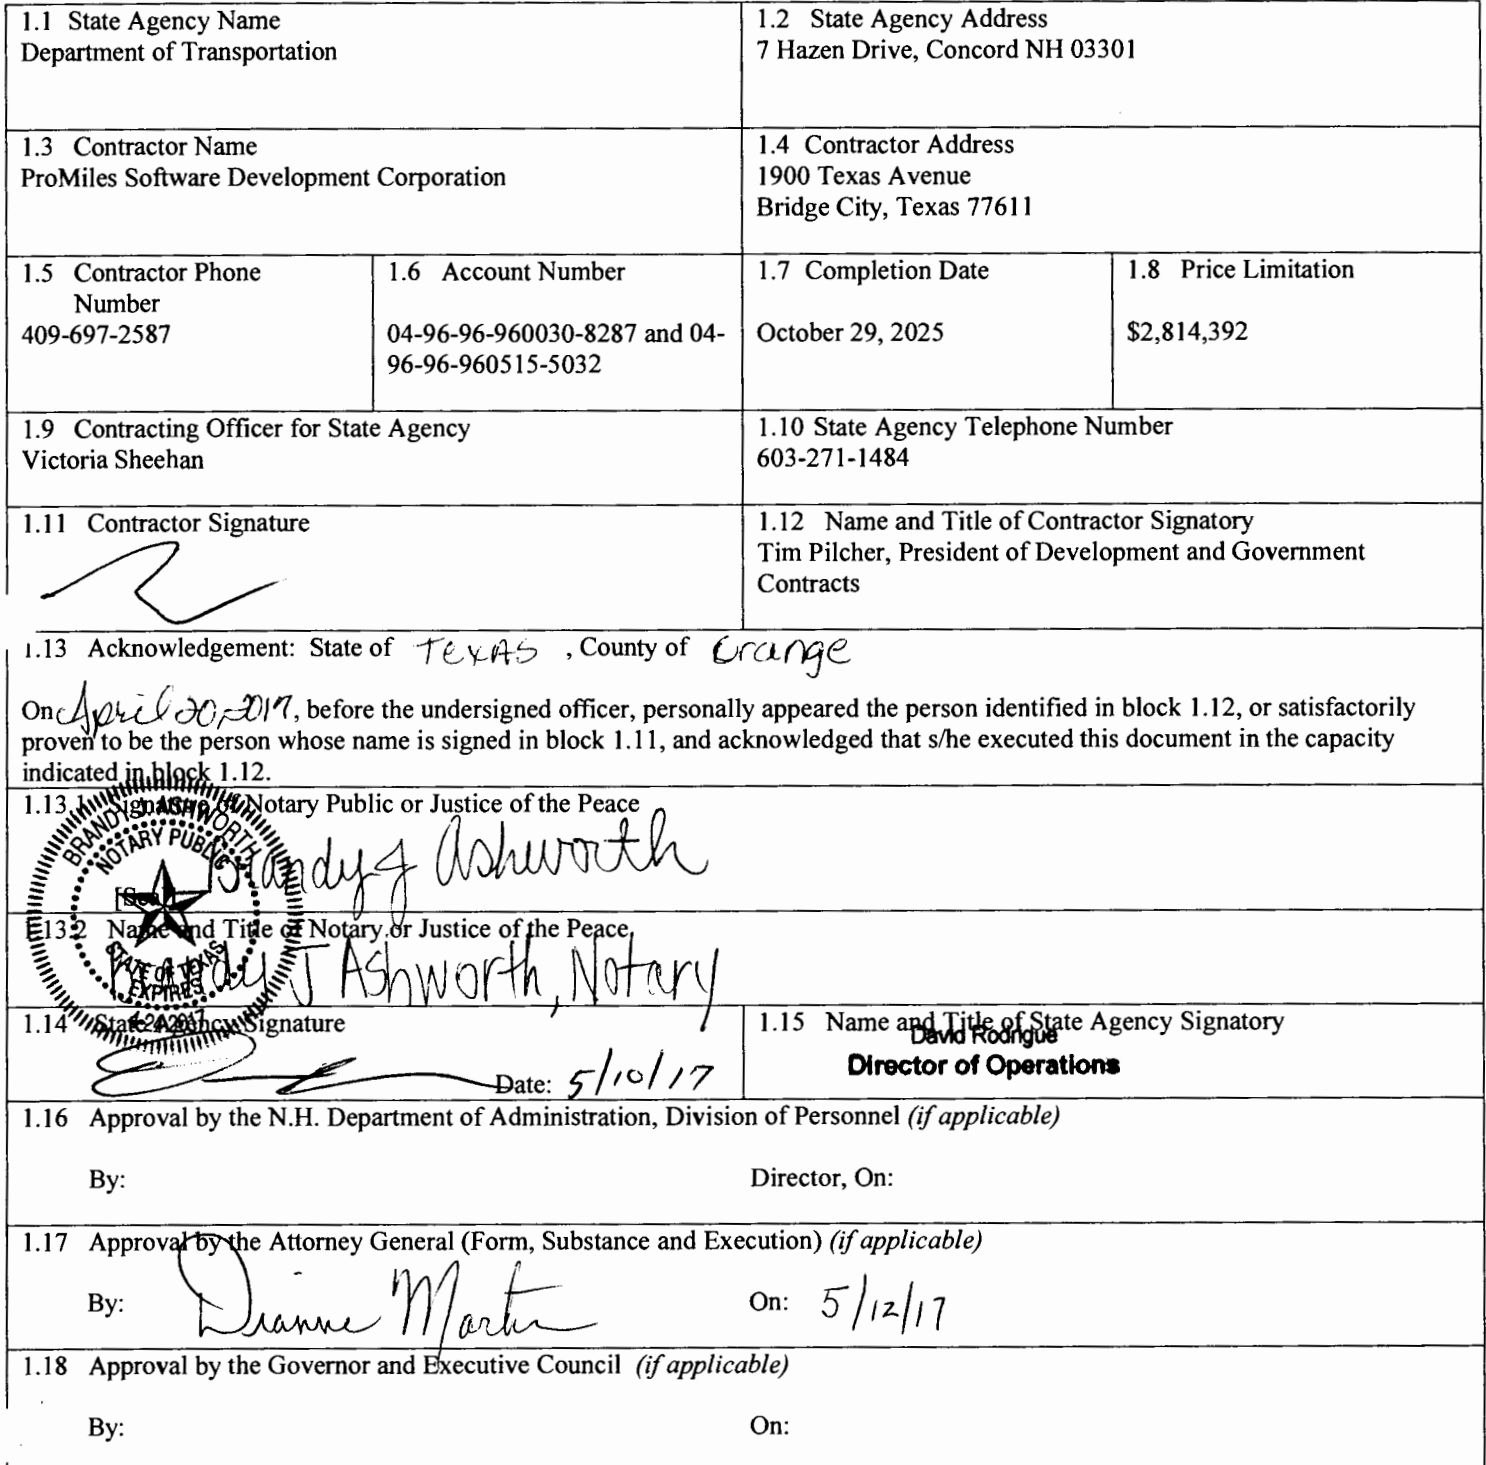 1.1 State Agency Name
Department of Transportation
1.2 State Agency Address
7 Hazen Drive, Concord NH 03301
1.3 Contractor Name
ProMiles Software Development Corporation
1.4 Contractor Address
1900 Texas Avenue
Bridge City, Texas 77611
1.5 Contractor Phone
Number
409-697-2587
1.6 Account Number
04-96-96-960030-8287 and 04-
96-96-960515-5032
1.7 Completion Date
October 29, 2025
1.8 Price Limitation
$2,814,392
1.9 Contracting Officer for State Agency
Victoria Sheehan
1.10 State Agency Telephone Number
603-271-1484
1.11 Contractor Signature
1.12 Name and Title of Contractor Signatory
Tim Pilcher, President of Development and Government
Contracts
1.13 Acknowledgement: State of Texas , County of Orange
On April 20, 2017, before the undersigned officer, personally appeared the person identified in block 1.12, or satisfactorily
proven to be the person whose name is signed in block 1.11, and acknowledged that s/he executed this document in the capacity
indicated in block 1.12.
1.13.1 Signature of Notary Public or Justice of the Peace
BRANDY J. ASHWORTH
NOTARY PUBLIC
Brandy J Ashworth
[Seal]
1.13.2 Name and Title of Notary or Justice of the Peace
STATE OF TEXAS
Brandy J Ashworth, Notary
EXPIRES
1.14 State Agency Signature
Date: 5/10/17
1.15 Name and Title of State Agency Signatory
David Rodrigue
Director of Operations
1.16 Approval by the N.H. Department of Administration, Division of Personnel (if applicable)
By:
Director, On:
1.17 Approval by the Attorney General (Form, Substance and Execution) (if applicable)
By: Dianne Martin
On: 5/12/17
1.18 Approval by the Governor and Executive Council (if applicable)
By:
On: